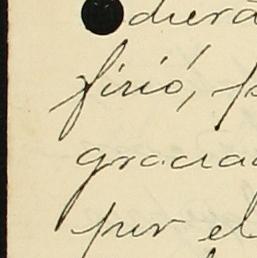 diera
firió, p
gracia
por el